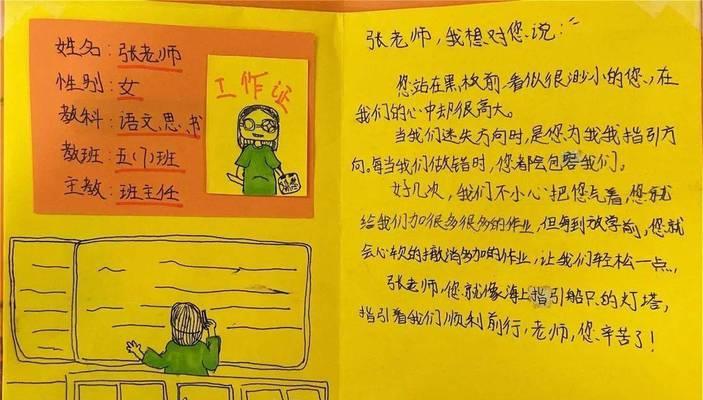 姓名:张老师
性别:女
教科:语文、思、书
教班:五(7)班
主教:班主任
工作证
张老师,我想对您说:
您站在黑板前,看似很渺小的您,在
我们的心中却很高大。
当我们迷失方向时,是您为我我指引方
向。每当我们做错时,您都会包容我们。
好几次,我们不小心把您气着,您就
给我们加很多很多的作业,但每到放学前,您就
会心软的撤消多加的作业,让我们轻松一点,
张老师,您就像海上指引船只的灯塔,
指引着我们顺利前行,老师,您辛苦了!